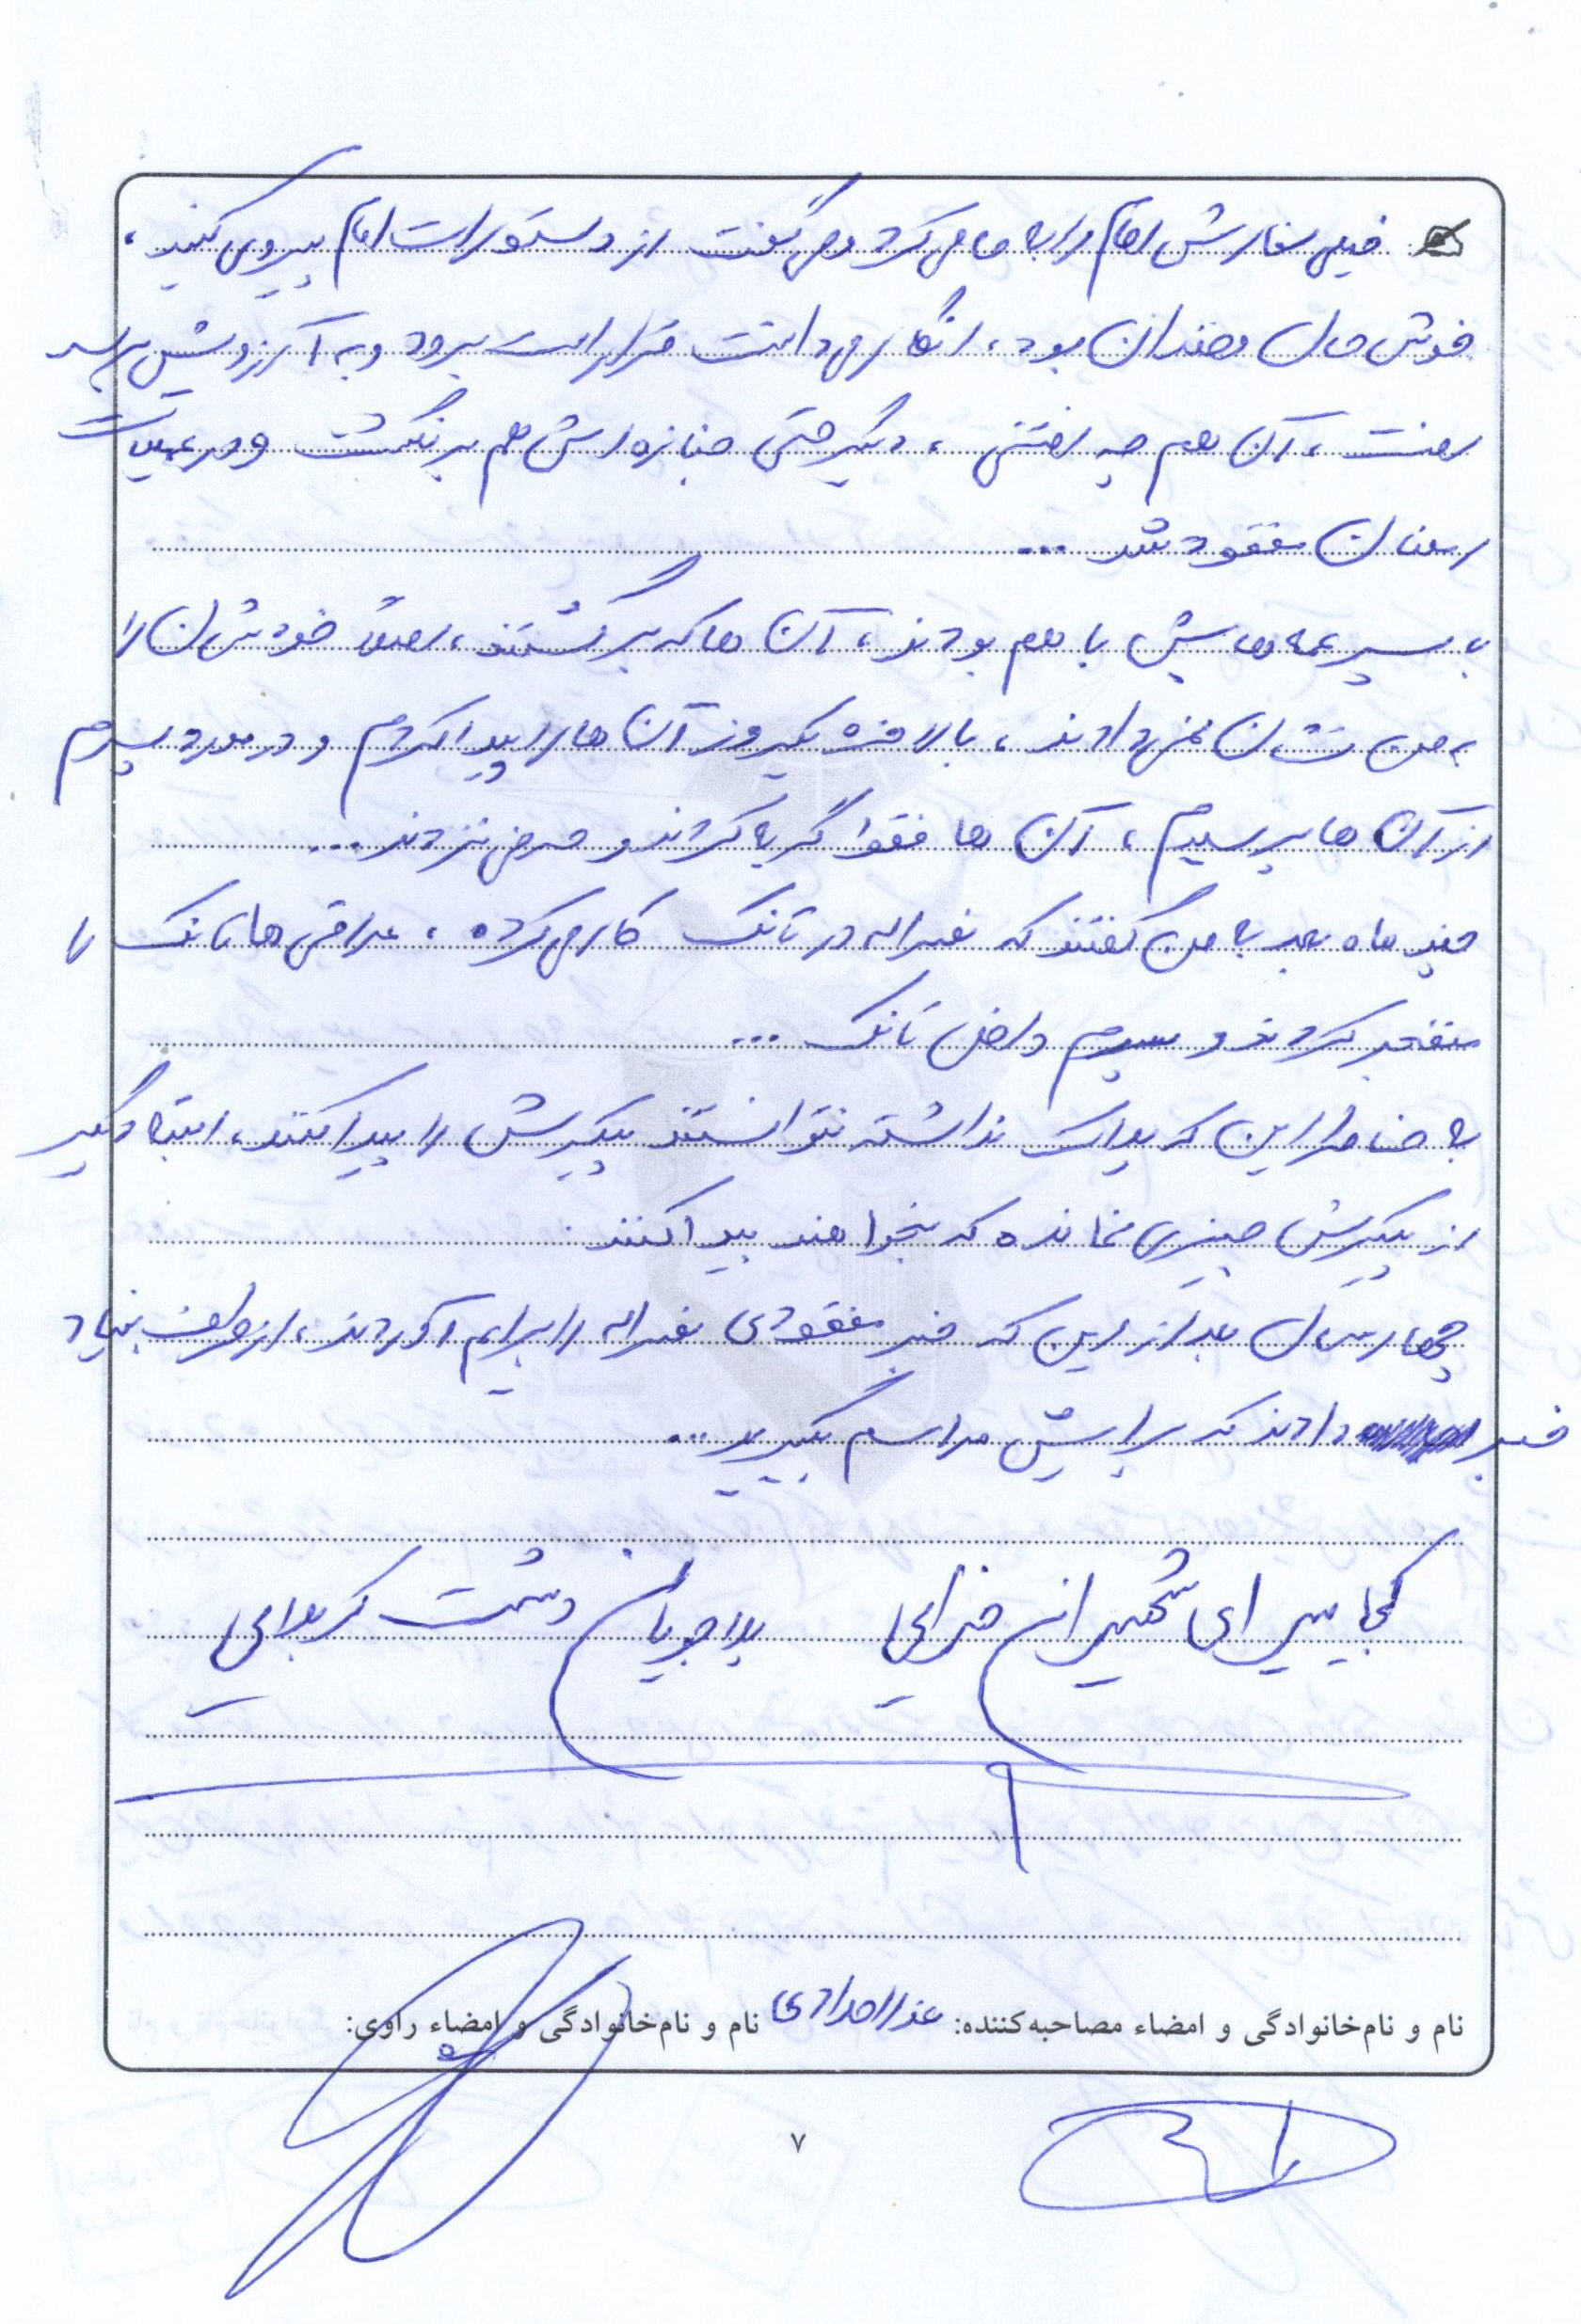 خیلی سفارش امام را به ما می‌کرد و می‌گفت از دستورات امام پیروی کنید،
خوش حال و خندان بود، انگار می‌دانست قرار است برود و به آرزویش برسد
رفت، آن هم چه رفتنی، دیگر حتی جنازه‌اش هم برنگشت و در عملیات
رمضان مفقود شد ...
با پسر عمه‌هایش با هم بودند، آن ها که برگشتند، اصلاً خودشان را
به من نشان نمی‌دادند، بالاخره یکروز آن ها را پیدا کردم و در مورد پسرم
از آن ها پرسیدم، آن ها فقط گریه کردند و حرفی نزدند ...
چند ماه بعد به من گفتند که نصراله در تانک کار می‌کرده، عراقی‌ها تانک را
منفجر کردند و پسرم داخل تانک ...
به خاطر این که پلاک نداشته نتوانستند پیکرش را پیدا کنند، البته دیگر
از پیکرش چیزی نمانده که بخواهند پیدا کنند.
چهار سال بعد از این که خبر مفقودی نصراله را برایم آوردند، از طرف بنیاد
خبر دادند که برایش مراسم بگیرید ...
کجایید ای شهیدان خدایی بلاجویان دشت کربلایی
نام و نام‌خانوادگی و امضاء مصاحبه‌کننده: عذرا مرادی نام و نام‌خانوادگی و امضاء راوی:
۷